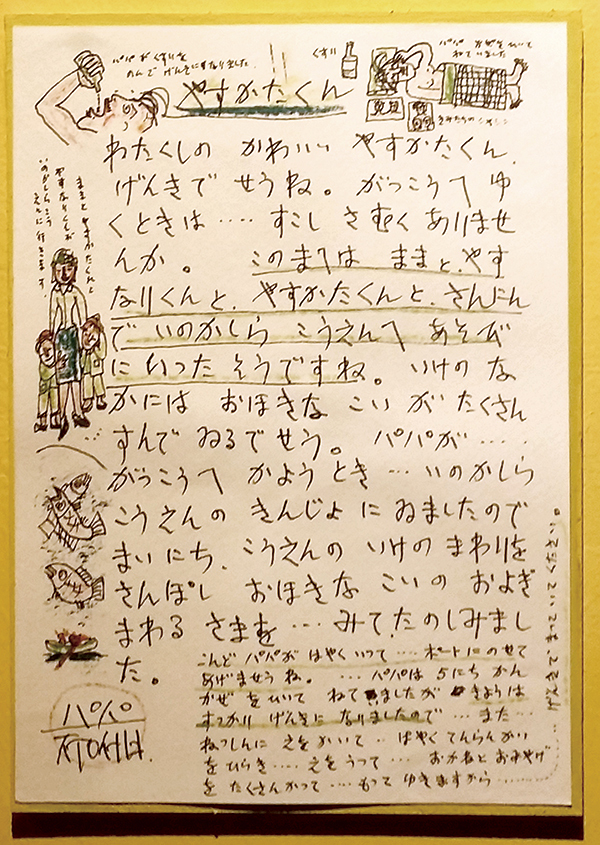 パパが くすりを
のんで げんきになりました
くすり
パパ かぜをひいて
ねていました
やすかたくん
わたくしの かわいい やすかたくん、
げんきで せうね。がっこうへ ゆ
くときは‥‥ すこし さむく ありませ
んか。 このまへは ままと、やす
なりくんと、やすかたくんと、さんにん
で いのかしら こうえんへ あそび
に いった そうですね。いけの な
かには おほきな こい が たくさん
すんで ゐるでせう。 パパが‥‥
がっこうへ かよう とき ‥ いのかしら
こうえんの きんじょ に ゐましたので
まいにち、こうえんの いけの まわりを
さんぽし おほきな こいの およぎ
まわる さまを ‥‥ みて、たのしみまし
た。
こんど パパが はやく いって ‥‥ ボートに のせて
あげませうね。 ‥‥ パパは 5にち かん
かぜ をひいて ねてゐましたが きょうは
すっかり げんきに なりましたので ‥‥ また‥‥
ねっしんに えを かいて ‥ はやく てんらんかい
をひらき‥‥ えを うって ‥‥ おかねと おみやげ
を たくさん かって ‥‥‥ もって ゆきますから ‥‥‥‥
げんきで、まっていてください。
ままと やすかたくんと
やすなりくんが
いのかしらこう
えんに行きます
パパ